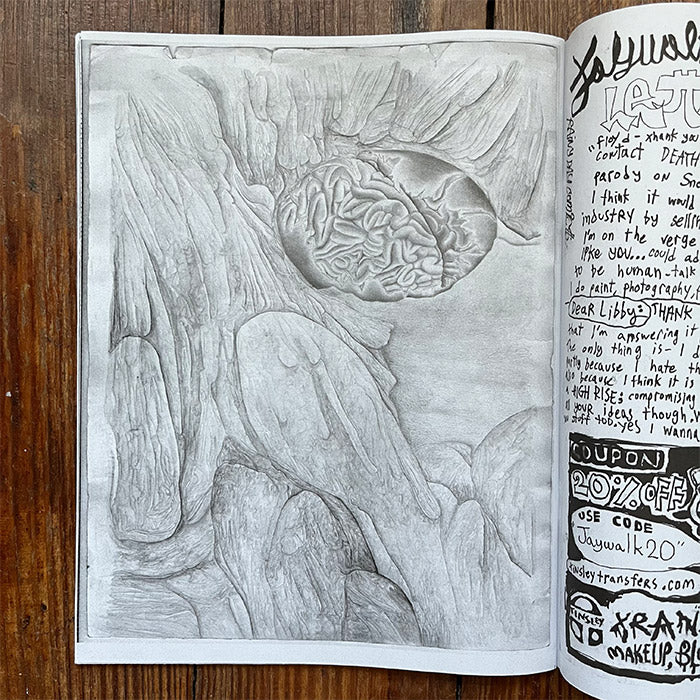 Jaywalk
LETT
"Floyd - thank you
contact DEATH
parody on Sno
I think it would
industry by selli
I'm on the verge
like you... could ad
to be human - talk
I do paint, photography, f
Dear Libby: THANK
that I'm answering it
The only thing is - I d
partly because I hate th
also because I think it is
HIGH RISE; compromising
all your ideas though. W
stuff too. yes I wanna
COUPON
20% OFF
USE CODE
"Jaywalk20"
tinsleytransfers.com
TINSLEY
XRAN
MAKEUP, BL